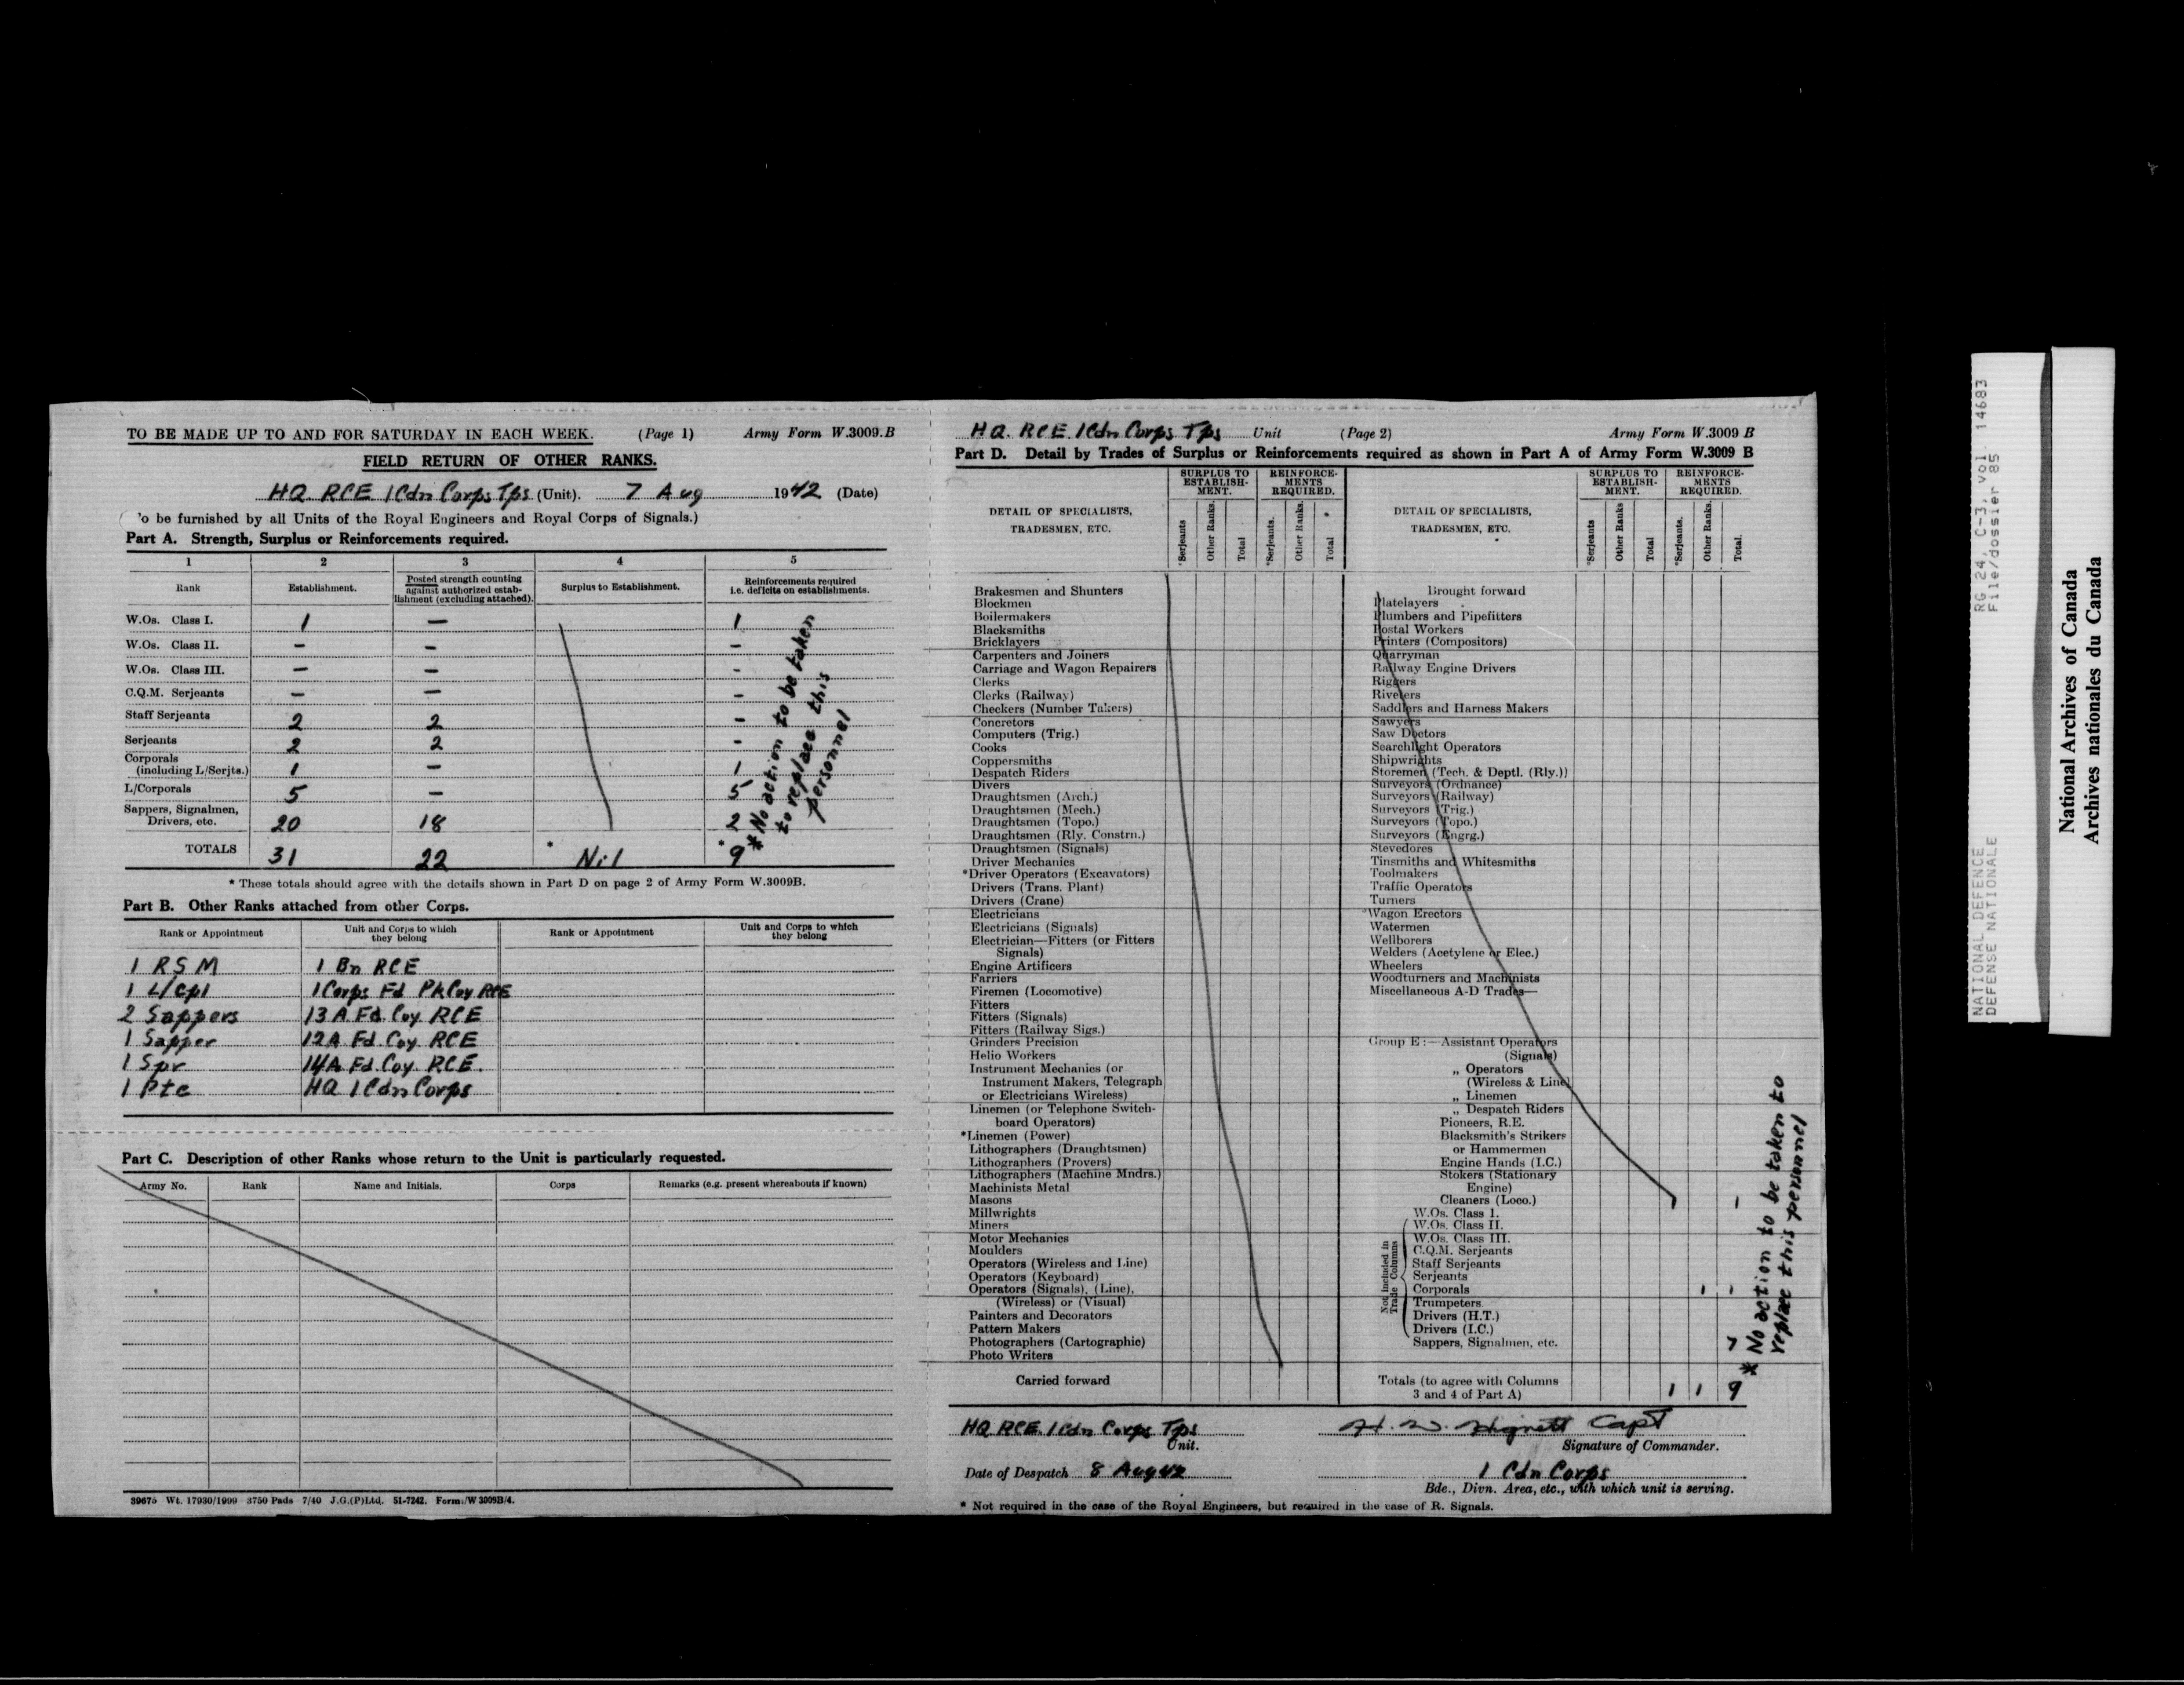 TO BE MADE UP TO AND FOR SATURDAY IN EACH WEEK. (Page 1) Army Form W.3009.B
FIELD RETURN OF OTHER RANKS.
HQ RCE 1 Cdn Corps Tps (Unit). 7 Aug 1942 (Date)
'o be furnished by all Units of the Royal Engineers and Royal Corps of Signals.)
Part A. Strength, Surplus or Reinforcements required.
1 2 3 4 5
Rank Establishment. Posted strength counting against authorized estab-lishment (excluding attached). Surplus to Establishment. Reinforcements required i.e. deficits on establishments.
W.Os. Class I. 1 — 1
W.Os. Class II. — — —
W.Os. Class III. — — —
C.Q.M. Serjeants — — —
Staff Serjeants 2 2 —
Serjeants 2 2 —
Corporals
(including L/Serjts.) 1 — 1
L/Corporals 5 — 5
Sappers, Signalmen,
Drivers, etc. 20 18 2
TOTALS 31 22 * Nil * 9
* No action to be taken
to replace this
personnel
* These totals should agree with the details shown in Part D on page 2 of Army Form W.3009B.
Part B. Other Ranks attached from other Corps.
Rank or Appointment Unit and Corps to which they belong Rank or Appointment Unit and Corps to which they belong
1 RSM 1 Bn RCE
1 L/Cpl 1 Corps Fd Pk Coy RCE
2 Sappers 13A Fd. Coy RCE
1 Sapper 12A Fd. Coy RCE
1 Spr 14A Fd. Coy RCE.
1 Pte HQ 1 Cdn Corps
Part C. Description of other Ranks whose return to the Unit is particularly requested.
Army No. Rank Name and Initials. Corps Remarks (e.g. present whereabouts if known)
39675 Wt. 17930/1999 3750 Pads 7/40 J.G.(P)Ltd. 51-7242. Forms/W3009B/4.
HQ. RCE. 1 Cdn Corps Tps Unit (Page 2) Army Form W.3009 B
Part D. Detail by Trades of Surplus or Reinforcements required as shown in Part A of Army Form W.3009 B
DETAIL OF SPECIALISTS,
TRADESMEN, ETC.
SURPLUS TO
ESTABLISH-
MENT.
REINFORCE-
MENTS
REQUIRED.
*Serjeants Other Ranks. Total *Serjeants. Other Ranks. Total *
Brakesmen and Shunters
Blockmen
Boilermakers
Blacksmiths
Bricklayers
Carpenters and Joiners
Carriage and Wagon Repairers
Clerks
Clerks (Railway)
Checkers (Number Takers)
Concretors
Computers (Trig.)
Cooks
Coppersmiths
Despatch Riders
Divers
Draughtsmen (Arch.)
Draughtsmen (Mech.)
Draughtsmen (Topo.)
Draughtsmen (Rly. Constrn.)
Draughtsmen (Signals)
Driver Mechanics
*Driver Operators (Excavators)
Drivers (Trans. Plant)
Drivers (Crane)
Electricians
Electricians (Signals)
Electrician—Fitters (or Fitters
Signals)
Engine Artificers
Farriers
Firemen (Locomotive)
Fitters
Fitters (Signals)
Fitters (Railway Sigs.)
Grinders Precision
Helio Workers
Instrument Mechanics (or
Instrument Makers, Telegraph
or Electricians Wireless)
Linemen (or Telephone Switch-
board Operators)
*Linemen (Power)
Lithographers (Draughtsmen)
Lithographers (Provers)
Lithographers (Machine Mndrs.)
Machinists Metal
Masons
Millwrights
Miners
Motor Mechanics
Moulders
Operators (Wireless and Line)
Operators (Keyboard)
Operators (Signals), (Line),
(Wireless) or (Visual)
Painters and Decorators
Pattern Makers
Photographers (Cartographic)
Photo Writers
Carried forward
DETAIL OF SPECIALISTS,
TRADESMEN, ETC.
SURPLUS TO
ESTABLISH-
MENT.
REINFORCE-
MENTS
REQUIRED.
*Serjeants Other Ranks Total *Serjeants. Other Ranks. Total.
Brought forward
Platelayers
Plumbers and Pipefitters
Postal Workers
Printers (Compositors)
Quarryman
Railway Engine Drivers
Riggers
Riveters
Saddlers and Harness Makers
Sawyers
Saw Doctors
Searchlight Operators
Shipwrights
Storemen (Tech. & Deptl. (Rly.))
Surveyors (Ordnance)
Surveyors (Railway)
Surveyors (Trig.)
Surveyors (Topo.)
Surveyors (Engrg.)
Stevedores
Tinsmiths and Whitesmiths
Toolmakers
Traffic Operators
Turners
*Wagon Erectors
Watermen
Wellborers
Welders (Acetylene or Elec.)
Wheelers
Woodturners and Machinists
Miscellaneous A-D Trades—
Group E :— Assistant Operators
(Signals)
„ Operators
(Wireless & Line)
„ Linemen
„ Despatch Riders
Pioneers, R.E.
Blacksmith's Strikers
or Hammermen
Engine Hands (I.C.)
Stokers (Stationary
Engine)
Cleaners (Loco.)
Not included in
Trade Columns
W.Os. Class 1. 1
W.Os. Class II.
W.Os. Class III.
C.Q.M. Serjeants
Staff Serjeants
Serjeants
Corporals 1 1
Trumpeters
Drivers (H.T.)
Drivers (I.C.)
Sappers, Signalmen, etc. 7
Totals (to agree with Columns
3 and 4 of Part A) 1 1 9
* No action to be taken to
replace this personnel
HQ RCE. 1 Cdn Corps Tps
Unit.
H. W. Hignett Capt
Signature of Commander.
Date of Despatch 8 Aug 42
1 Cdn Corps
Bde., Divn. Area, etc., with which unit is serving.
* Not required in the case of the Royal Engineers, but required in the case of R. Signals.
RG 24, C-3, vol. 14683
File/dossier 85
NATIONAL DEFENCE
DEFENSE NATIONALE
National Archives of Canada
Archives nationales du Canada